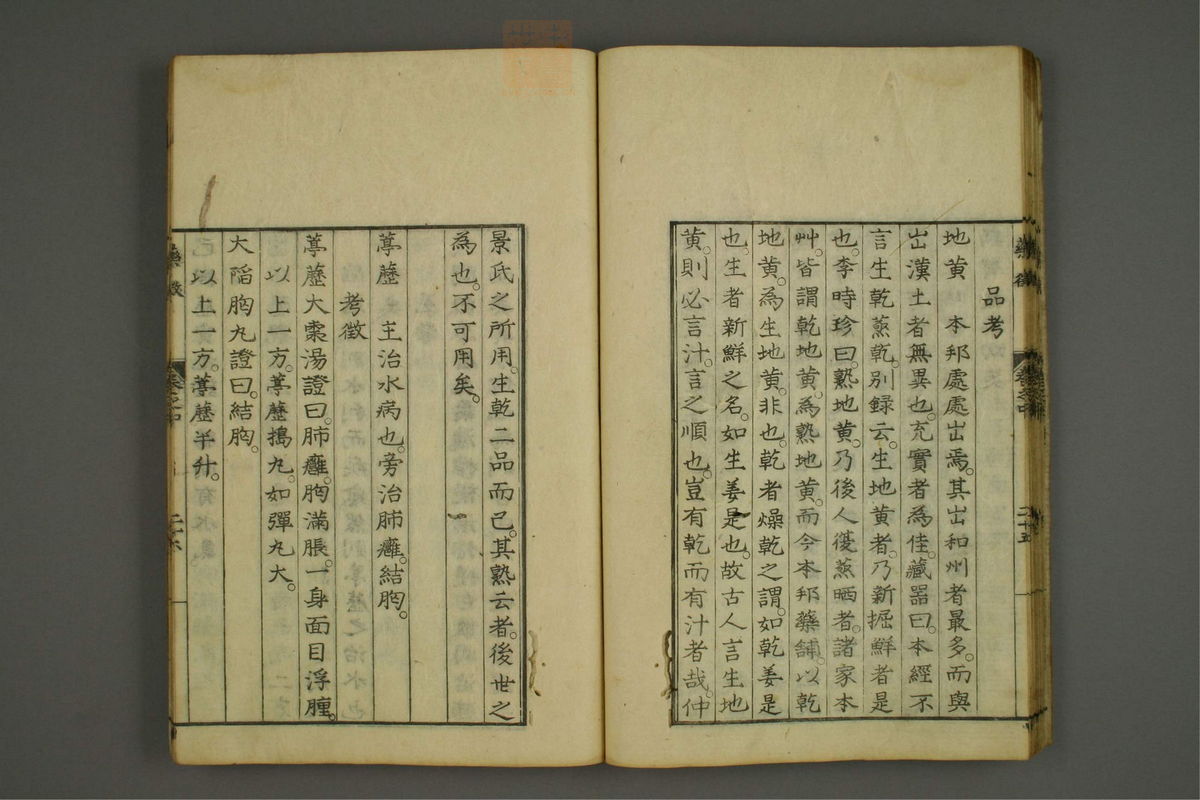 品考
地黃　本邦處處出焉。其出和州者最多。而與
出漢土者無異也。充實者為佳。藏器曰。本經不
言生乾蒸乾。別録云。生地黃者。乃新掘鮮者是
也。李時珍曰。熟地黃。乃後人復蒸晒者。諸家本
艸。皆謂乾地黃。為熟地黃。而今本邦藥舖。以乾
地黃。為生地黃。非也。乾者燥乾之謂。如乾姜是
也。生者新鮮之名。如生姜是也。故古人言生地
黃。則必言汁。言之順也。豈有乾而有汁者哉。仲
藥徵
卷之中
二十五
景氏之所用。生乾二品而已。其熟云者。後世之
為也。不可用矣。
葶藶　主治水病也。旁治肺癰。結胸。
考徵
葶藶大棗湯證曰。肺癰。胸滿脹。一身面目浮腫。
以上一方。葶藶搗丸。如彈丸大。
大陷胸丸證曰。結胸。
以上一方。葶藶半升。
藥徵
卷之中
二十六